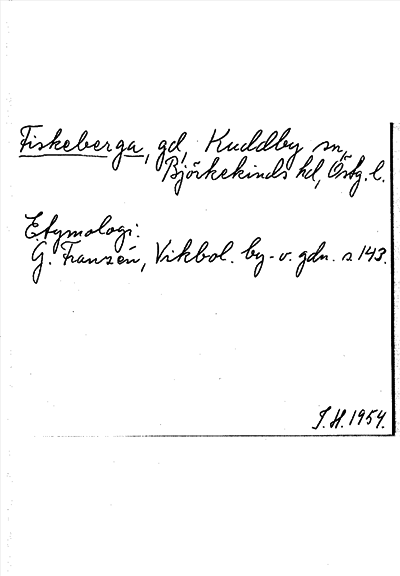 Fiskeberga, gd, Kuddby sn,
Björkekinds hd, Östg. l.
Etymologi:
G. Franzén, Vikbol. by- o. gdn. s 143.
I. H. 1954.